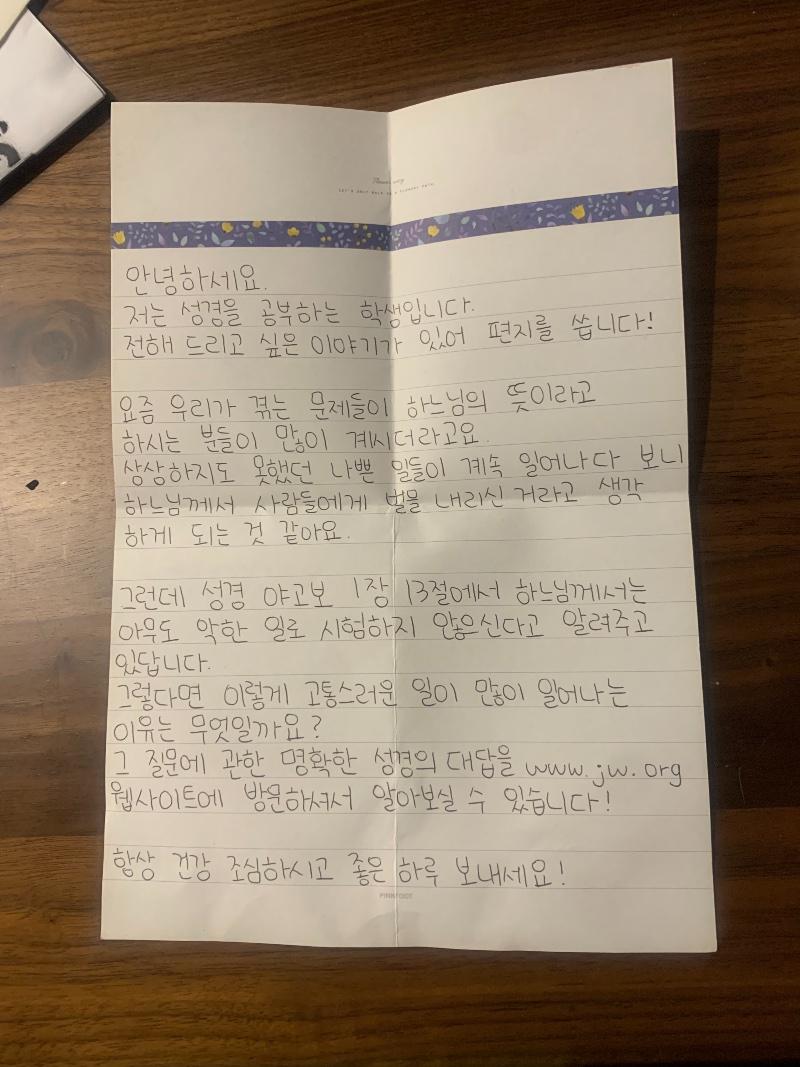 LET'S ONLY WALK ON A FLOWERY PATH
안녕하세요.
저는 성경을 공부하는 학생입니다.
전해 드리고 싶은 이야기가 있어 편지를 씁니다!
요즘 우리가 겪는 문제들이 하느님의 뜻이라고
하시는 분들이 많이 계시더라고요.
상상하지도 못했던 나쁜 일들이 계속 일어나다 보니
하느님께서 사람들에게 벌을 내리신 거라고 생각
하게 되는 것 같아요.
그런데 성경 야고보 1장 13절에서 하느님께서는
아무도 악한 일로 시험하지 않으신다고 알려주고
있답니다.
그렇다면 이렇게 고통스러운 일이 많이 일어나는
이유는 무엇일까요?
그 질문에 관한 명확한 성경의 대답을 www.jw.org
웹사이트에 방문하셔서 알아보실 수 있습니다!
항상 건강 조심하시고 좋은 하루 보내세요!
PINKFOOT